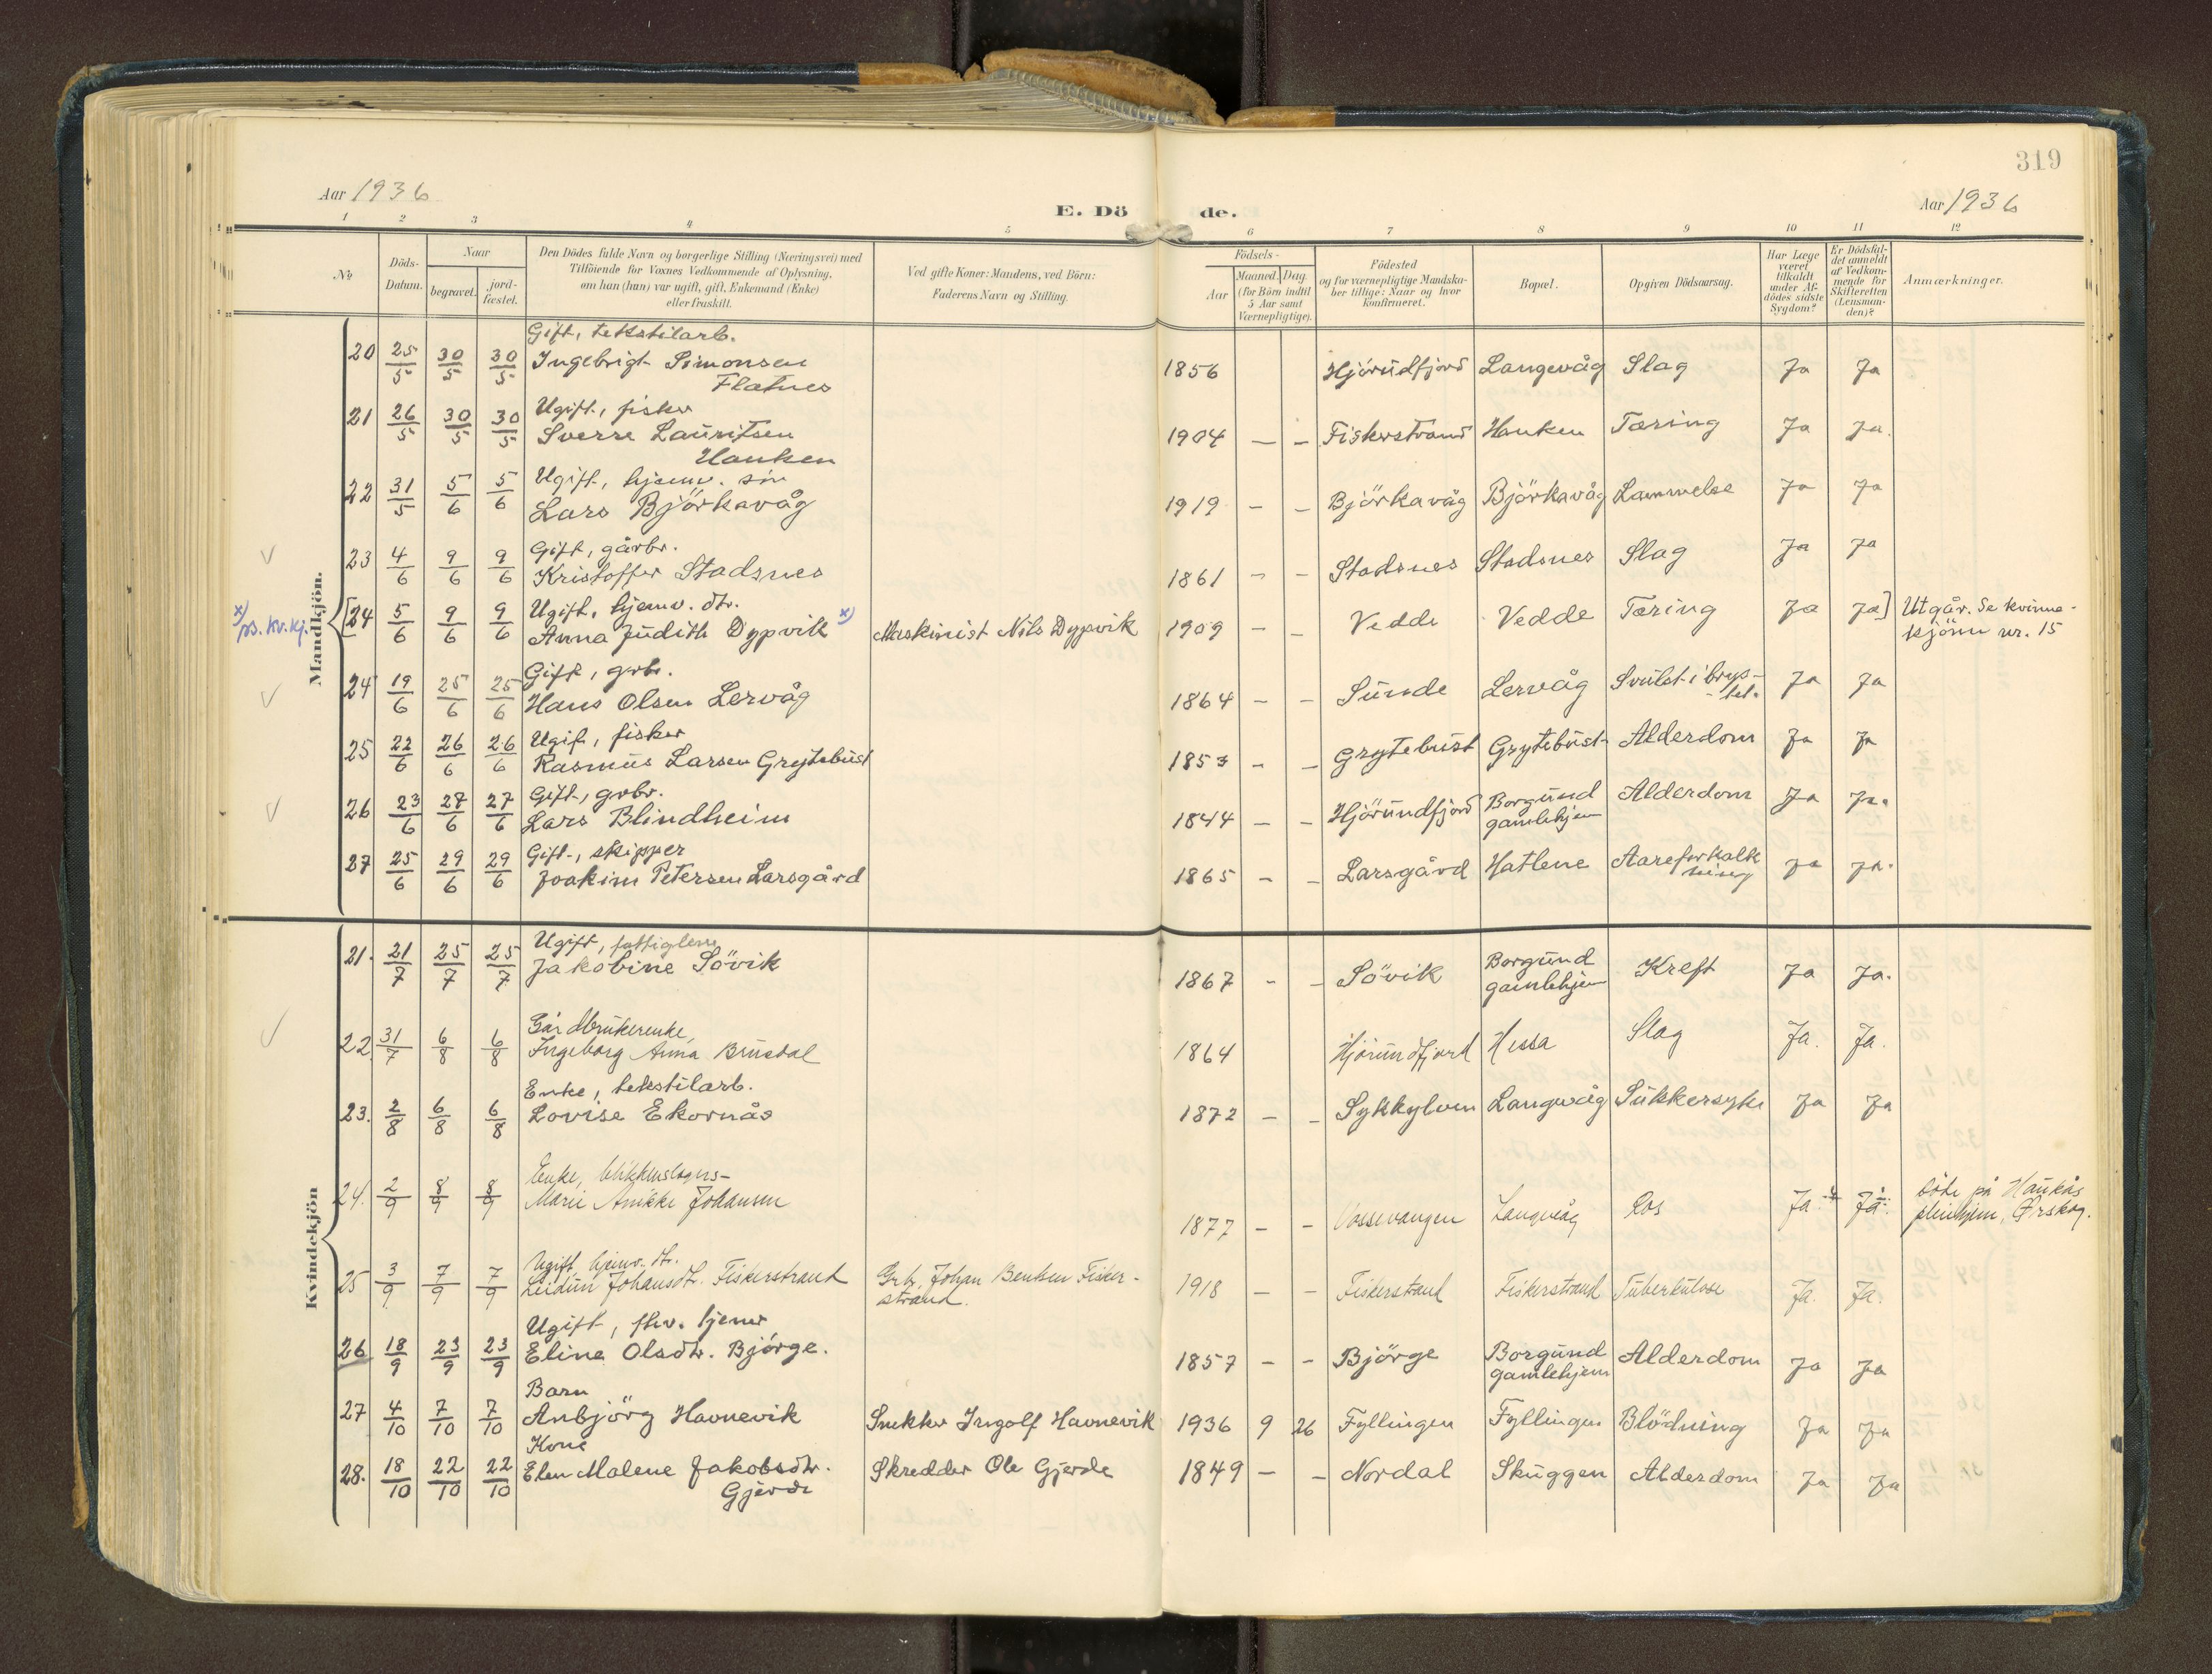 319
Aar 1936
Aar 1936
E. Dö de.
1 2 3 4 5 6 7 8 9 10 11 12
No.
Döds-
Datum.
Naar
begravet.
jord-
fæstet.
Den Dödes fulde Navn og borgerlige Stilling (Næringsvei) med
Tilföiende for Voxnes Vedkommende af Oplysning,
om han (hun) var ugift, gift, Enkemand (Enke)
eller fraskilt.
Ved gifte Koner: Mandens, ved Börn:
Faderens Navn og Stilling.
Födsels-
Aar
Maaned. Dag.
(for Börn indtil
5 Aar samt
Værnepligtige).
Födested
og for værnepligtige Mandska-
ber tillige: Naar og hvor
konfirmeret.
Bopæl.
Opgiven Dödsaarsag.
Har Læge
været
tilkaldt
under Af-
dödes sidste
Sygdom?
Er Dödsfal-
det anmeldt
af Vedkom-
mende for
Skifteretten
(Lensman-
den)?
Anmærkninger.
Mandkjön.
Gift, tekstilarb.
20 25/5 30/5 30/5 Ingebrigt Simonsen 1856 Hjörundfjord Langevåg Slag Ja Ja
Flatnes
Ugift, fisker
21 26/5 30/5 30/5 Sverre Lauritsen 1904 — — Fiskerstrand Hanken Tæring Ja Ja.
Hanken
Ugift, hjemv. sön
22 31/5 5/6 5/6 Lars Björkavåg 1919 — — Björkavåg Björkavåg Lammelse Ja Ja
Gift, gårbr.
23 4/6 9/6 9/6 Kristoffer Stadsnes 1861 — — Stadsnes Stadsnes Slag Ja Ja
Ugift, hjemv. dtr.
x) ps. kv.kj. [24 5/6 9/6 9/6 Anna Judith Dypvik x) Maskinist Nils Dypvik 1909 — — Vedde Vedde Tæring Ja Ja] Utgår. Se kvinne-
kjönn nr. 15
Gift, grbr.
24 19/6 25/6 25/6 Hans Olsen Lervåg 1864 — — Sunde Lervåg Svulst i brys-
tet. Ja Ja
Ugift, fisker
25 22/6 26/6 26/6 Rasmus Larsen Grytebust 1853 — — Grytebust Grytebust Alderdom Ja Ja
Gift, grbr.
26 23/6 27/6 27/6 Lars Blindheim 1844 — — Hjörundfjord Borgund
gamlehjem Alderdom Ja Ja.
Gift, skipper
27 25/6 29/6 29/6 Joakim Petersen Larsgård 1865 — — Larsgård Hatlene Aareforkalk
ning Ja Ja.
Kvindekjön
Ugift, fattiglem
21. 21/7 25/7 25/7 Jakobine Sövik 1867 - — Sövik Borgund
gamlehjem Kreft Ja Ja.
Gårdbrukerenke,
22 31/7 6/8 6/8 Ingeborg Anna Brusdal 1864 Hjörundfjord Hessa Slag Ja. Ja.
Enke, tekstilarb.
23. 2/8 6/8 6/8 Lovise Ekornås 1872 — - Sykkylven Langevåg Sukkersyke Ja Ja
Enke, blikkenslagers-
24. 2/9 8/9 8/9 Marie Anikke Johansen 1877 — — Vossevangen Langevåg Ros Ja. Ja. Döde på Haukås
pleiehjem, Ørskog.
Ugift hjemv. dtr.
25 3/9 7/9 7/9 Leidun Johansdtr. Fiskerstrand Grbr. Johan Bentsen Fisker-
strand. 1918 — — Fiskerstrand Fiskerstrand Tuberkulose Ja. Ja.
Ugift, fhv. tjener
26 18/9 23/9 23/9 Eline Olsdtr. Björge. 1857 - - Björge Borgund
gamlehjem Alderdom Ja Ja
Barn
27 4/10 7/10 7/10 Anbjörg Havnevik Snekker Ingolf Havnevik 1936 9 26 Fyllingen Fyllingen Blödning Ja Ja
Kone
28. 18/10 22/10 22/10 Elen Malene Jakobsdtr. Skredder Ole Gjerde 1849 — — Nordal Skuggen Alderdom Ja Ja
Gjerde